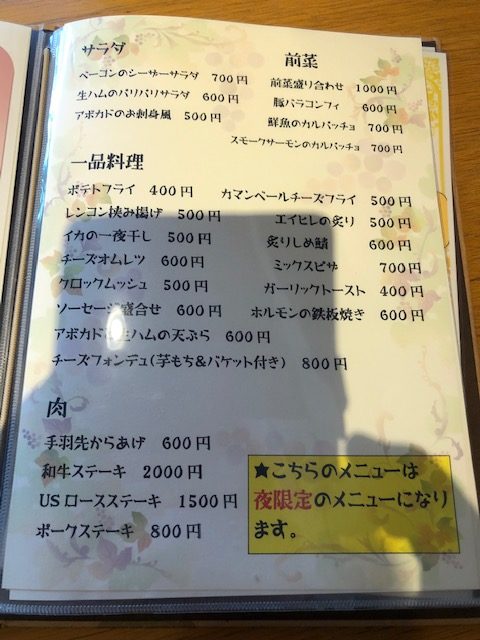 サラダ
ベーコンのシーザーサラダ 700円
生ハムのパリパリサラダ 600円
アボカドのお刺身風 500円
前菜
前菜盛り合わせ 1000円
豚バラコンフィ 600円
鮮魚のカルパッチョ 700円
スモークサーモンのカルパッチョ 700円
一品料理
ポテトフライ 400円
レンコン挟み揚げ 500円
イカの一夜干し 500円
チーズオムレツ 600円
クロックムッシュ 500円
ソーセージ盛合せ 600円
アボカド 生ハムの天ぷら 600円
チーズフォンデュ(芋もち&バケット付き) 800円
カマンベールチーズフライ 500円
エイヒレの炙り 500円
炙りしめ鯖 600円
ミックスピザ 700円
ガーリックトースト 400円
ホルモンの鉄板焼き 600円
肉
手羽先からあげ 600円
和牛ステーキ 2000円
USロースステーキ 1500円
ポークステーキ 800円
★こちらのメニューは
夜限定のメニューになり
ます。